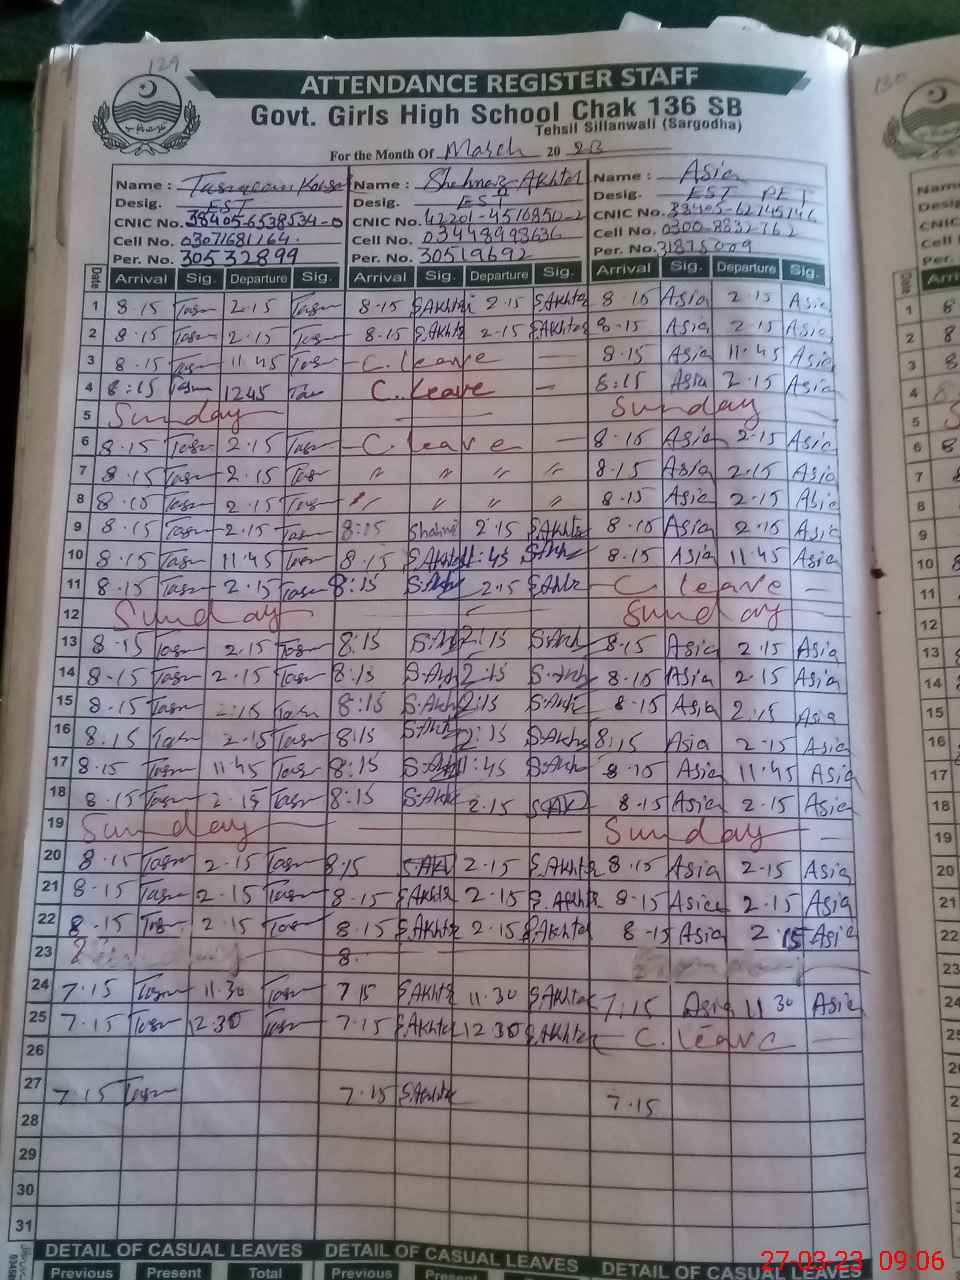 129
ATTENDANCE REGISTER STAFF
130
Govt. Girls High School Chak 136 SB
Tehsil Sillanwali (Sargodha)
For the Month Of March 20 23
Name : Name : Shehnaz Akhter Name : Asia
Desig. EST Desig. EST Desig. EST PET
CNIC No. 38405-6538534-0 CNIC No. 42201-4516850-2 CNIC No.
Cell No. 03071681164 Cell No. 03448998636 Cell No. 0300-8832762
Per. No. 30532899 Per. No. 30519692 Per. No. 31875009
Date Arrival Sig. Departure Sig. Arrival Sig. Departure Sig. Arrival Sig. Departure Sig.
1 8.15 Tasn 2.15 Tasn 8.15 S.Akhter 2.15 S.Akhter 8.15 Asia 2.15 Asia
2 8.15 Tasn 2.15 Tasn 8.15 S.Akhter 2.15 S.Akhter 8.15 Asia 2.15 Asia
3 8.15 Tasn 11.45 Tasn C. leave — 8.15 Asia 11.45 Asia
4 8:15 Tasn 12 45 Tasn C. leave — 8:15 Asia 2.15 Asia
5 Sunday — Sunday
6 8.15 Tasn 2.15 Tasn C. leave — 8.15 Asia 2.15 Asia
7 8.15 Tasn 2.15 Tasn " " " " 8.15 Asia 2.15 Asia
8 8.15 Tasn 2.15 Tasn " " " " 8.15 Asia 2.15 Asia
9 8.15 Tasn 2.15 Tasn 8:15 2.15 S.Akhter 8.15 Asia 2.15 Asia
10 8.15 Tasn 11.45 Tasn 8.15 S.Akhter 11:45 S.Akh 8.15 Asia 11.45 Asia
11 8.15 Tasn 2.15 Tasn 8:15 S.Akh 2.15 S.Akh C leave —
12 Sunday — Sunday
13 8.15 Tasn 2.15 Tasn 8:15 S.Akh 2:15 S.Akh 8.15 Asia 2.15 Asia
14 8.15 Tasn 2.15 Tasn 8:15 S.Akh 2:15 S.Akh 8.15 Asia 2.15 Asia
15 8.15 Tasn 2:15 Tasn 8:15 S.Akh 2:15 S.Akh 8.15 Asia 2.15 Asia
16 8.15 Tasn 2.15 Tasn 8:15 S.Akh 2:15 S.Akh 8:15 Asia 2.15 Asia
17 8.15 Tasn 11.45 Tasn 8:15 S.Akh 11:45 S.Akh 8.15 Asia 11.45 Asia
18 8.15 Tasn 2.15 Tasn 8:15 S.Akh 2.15 S.Ak 8.15 Asia 2.15 Asia
19 Sunday — Sunday —
20 8.15 Tasn 2.15 Tasn 8.15 S.Akh 2.15 S.Akhter 8.15 Asia 2.15 Asia
21 8.15 Tasn 2.15 Tasn 8.15 S.Akhter 2.15 S.Akhter 8.15 Asia 2.15 Asia
22 8.15 Tasn 2.15 Tasn 8.15 S.Akhter 2.15 S.Akhter 8.15 Asia 2.15 Asia
23 8.
24 7.15 Tasn 11.30 Tasn 7 15 S.Akhter 11.30 S.Akhter 7:15 Asia 11 30 Asia
25 7.15 Tasn 12.30 Tasn 7.15 S.Akhter 12 30 S.Akhter C. leave —
26
27 7.15 Tasn 7.15 S.Akhter 7.15
28
29
30
31
DETAIL OF CASUAL LEAVES DETAIL OF CASUAL LEAVES DETAIL OF CASUAL LEAVES
Previous Present Total Previous Present
27-03-23 09:06